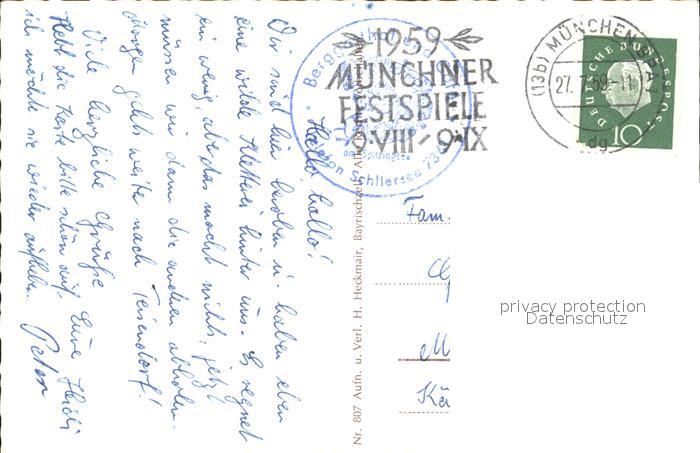 Hallo, hallo!
Wir sind hier heroben u. haben eben
eine wilde Kletterei hinter uns. Es regnet
ein wenig aber das macht nichts, jetzt
müssen wir dann die anderen abholen.
Morgen geht's weiter nach Teisendorf!
Viele herzliche Grüße
Eure Heidi
Hebt die Karte bitte schön auf,
ich möchte sie wieder aufheben.
Peter
Nr. 807 Aufn. u. Verl. H. Heckmair, Bayrischzell
1959
MÜNCHNER
FESTSPIELE
9·VIII - 9·IX
Berg
am Spitzingsee
Schliersee
(13b) MÜNCHEN
27.7.59-11
dg
DEUTSCHE BUNDESPOST
10
Fam.
M
Kä
privacy protection
Datenschutz